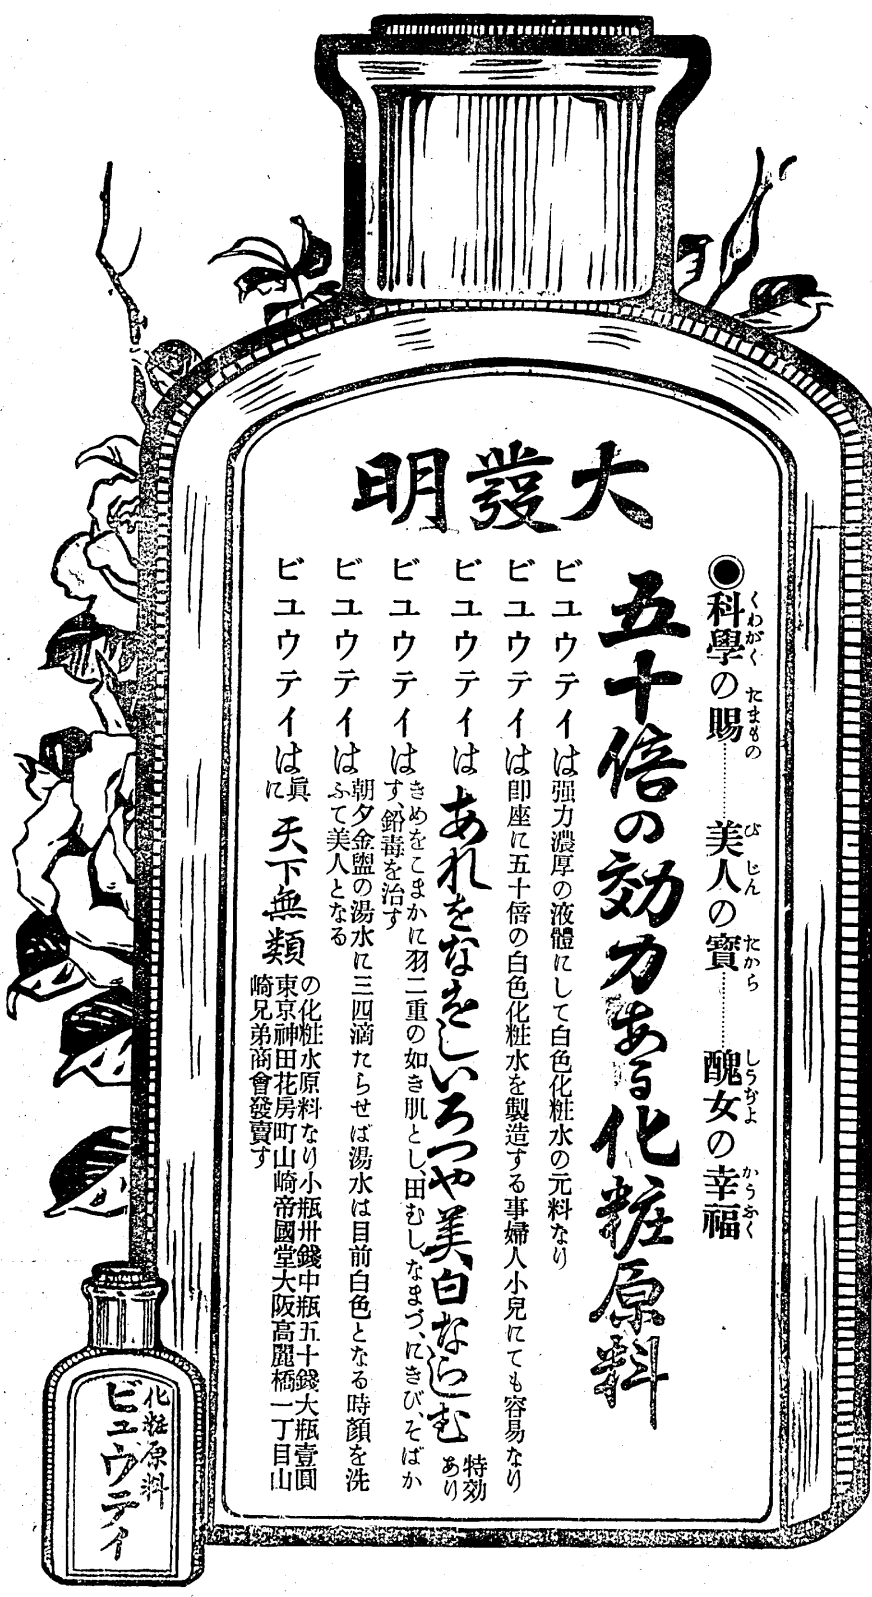 明發大
●科學の賜……美人の寳……醜女の幸福
くわがく たまもの び じん たから しうぢよ かうふく
五十倍の効力ある化粧原料
ビユウテイは强力濃厚の液體にして白色化粧水の元料なり
ビユウテイは即座に五十倍の白色化粧水を製造する事婦人小兒にても容易なり
ビユウテイはあれをなをしいろつや美白ならしむ特効あり
ビユウテイはきめをこまかに羽二重の如き肌とし、田むし、なまづ、にきび、そばかす、鉛毒を治す
ビユウテイは朝夕金盥の湯水に三四滴たらせば湯水は目前白色となる時顏を洗ふて美人となる
ビユウテイは眞に天下無類の化粧水原料なり小瓶卅錢中瓶五十錢大瓶壹圓
東京神田花房町山崎帝國堂大阪高麗橋一丁目山
崎兄弟商會發賣す
化粧原料
ビユウテイ